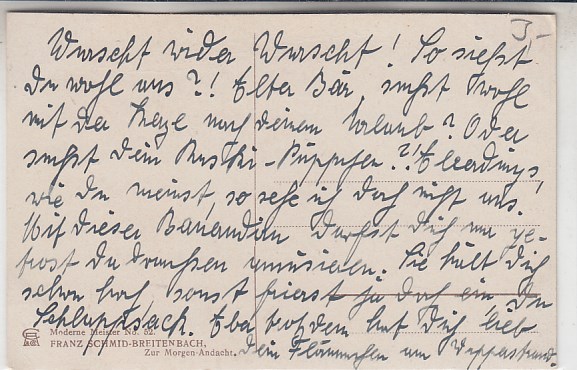 3,-
Wurscht wider Wurscht! So siehst
Du wohl aus?! Elter Bär, suchst wohl
mit der Kerze nach deinem Urlaub? Oder
suchst dein Ruski-Püppchen?! Allerdings,
wie Du meinst, so sehe ich doch nicht aus.
Mit dieser darfst Dich nur ge-
trost da draußen amüsieren. Sie hält Dich
schon hoch sonst frierst ja doch ein, Du
Schluppsack. Aba trotzdem hat Dich lieb
dein Flämmchen am
Moderne Meister No. 52.
FRANZ SCHMID-BREITENBACH,
Zur Morgen-Andacht.